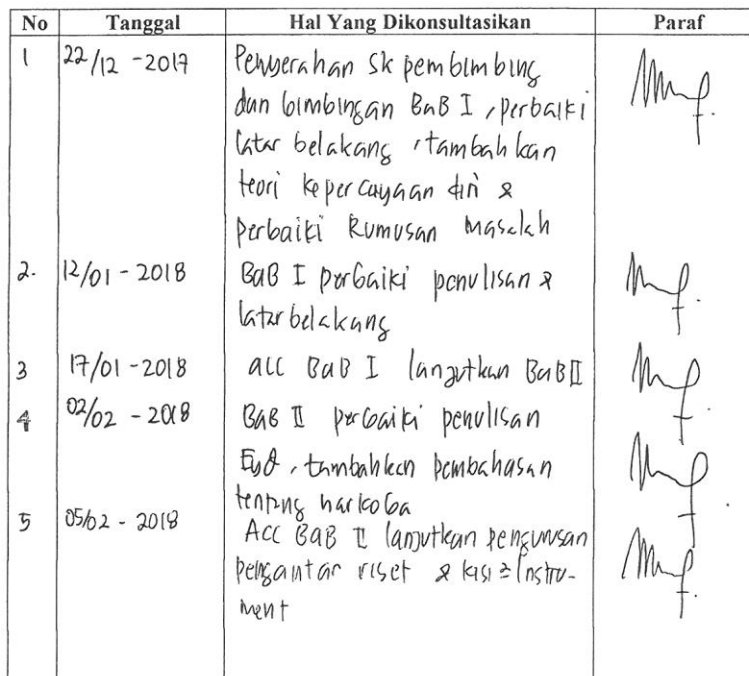 No Tanggal Hal Yang Dikonsultasikan Paraf
1 22/12 - 2017 Penyerahan SK pembimbing
dan bimbingan BaB I, perbaiki
latar belakang, tambahkan
teori kepercayaan diri &
perbaiki Rumusan Masalah
2. 12/01 - 2018 BaB I perbaiki penulisan &
latar belakang
3 17/01 - 2018 acc BaB I lanjutkan BaB II
4 02/02 - 2018 BaB II perbaiki penulisan
EyD, tambahkan pembahasan
tentang narkoba
5 05/02 - 2018
Acc BaB II lanjutkan pengurusan
pengantar riset & kisi2 Instru-
ment